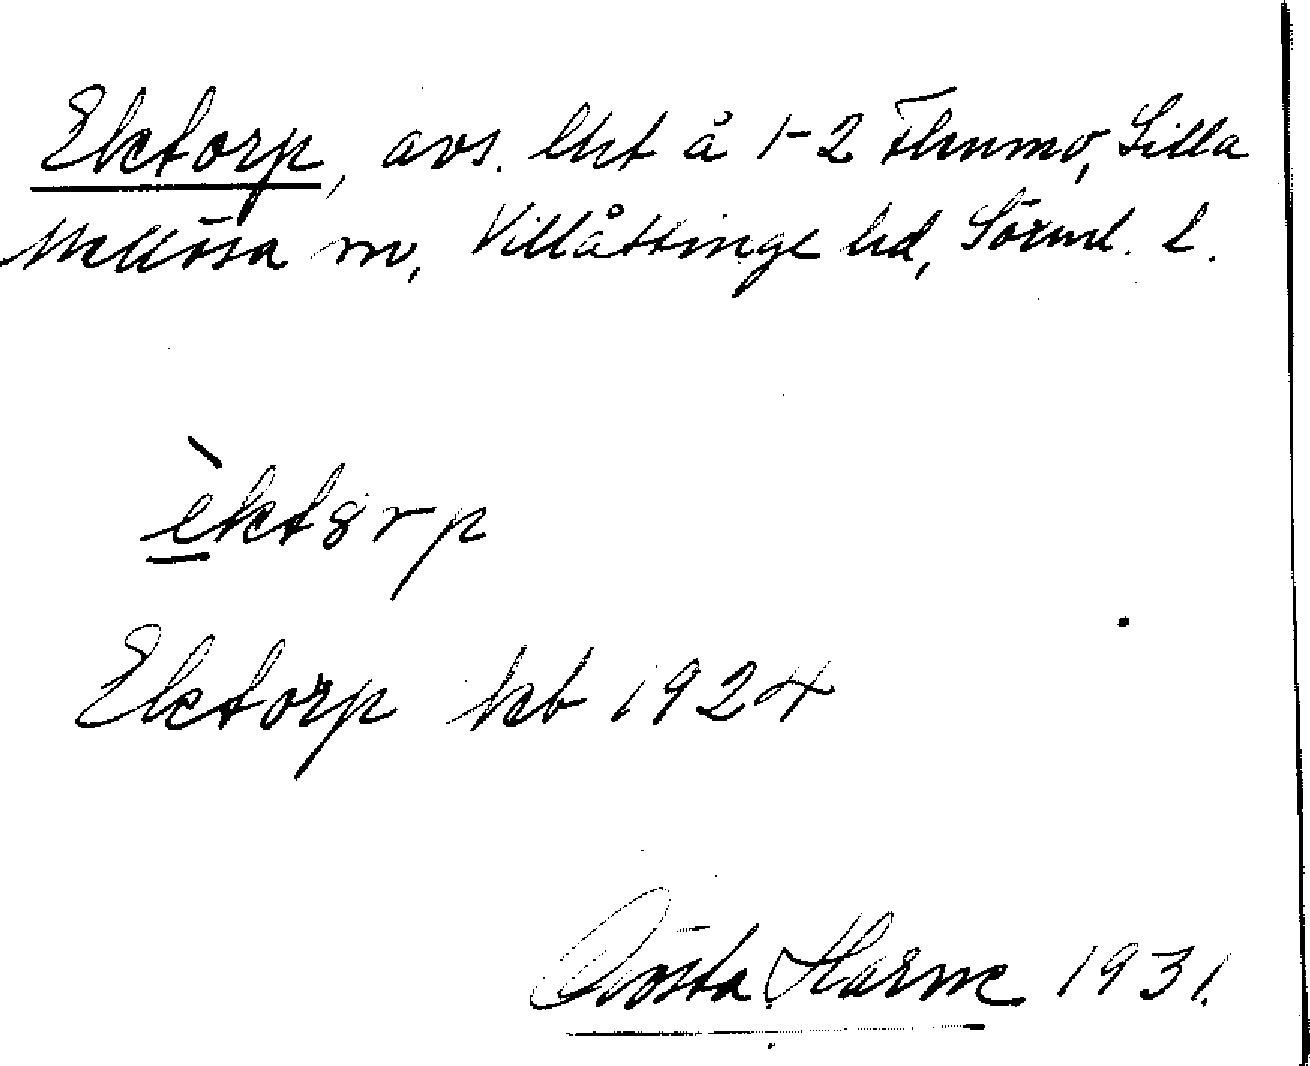 Ektorp, avs. lht å 1-2 Flenmo, Lilla
Mellösa sn, Villåttinge hd, Sörml. l.
èktørp
Ektorp kb 1924
Gösta Harne 1931.